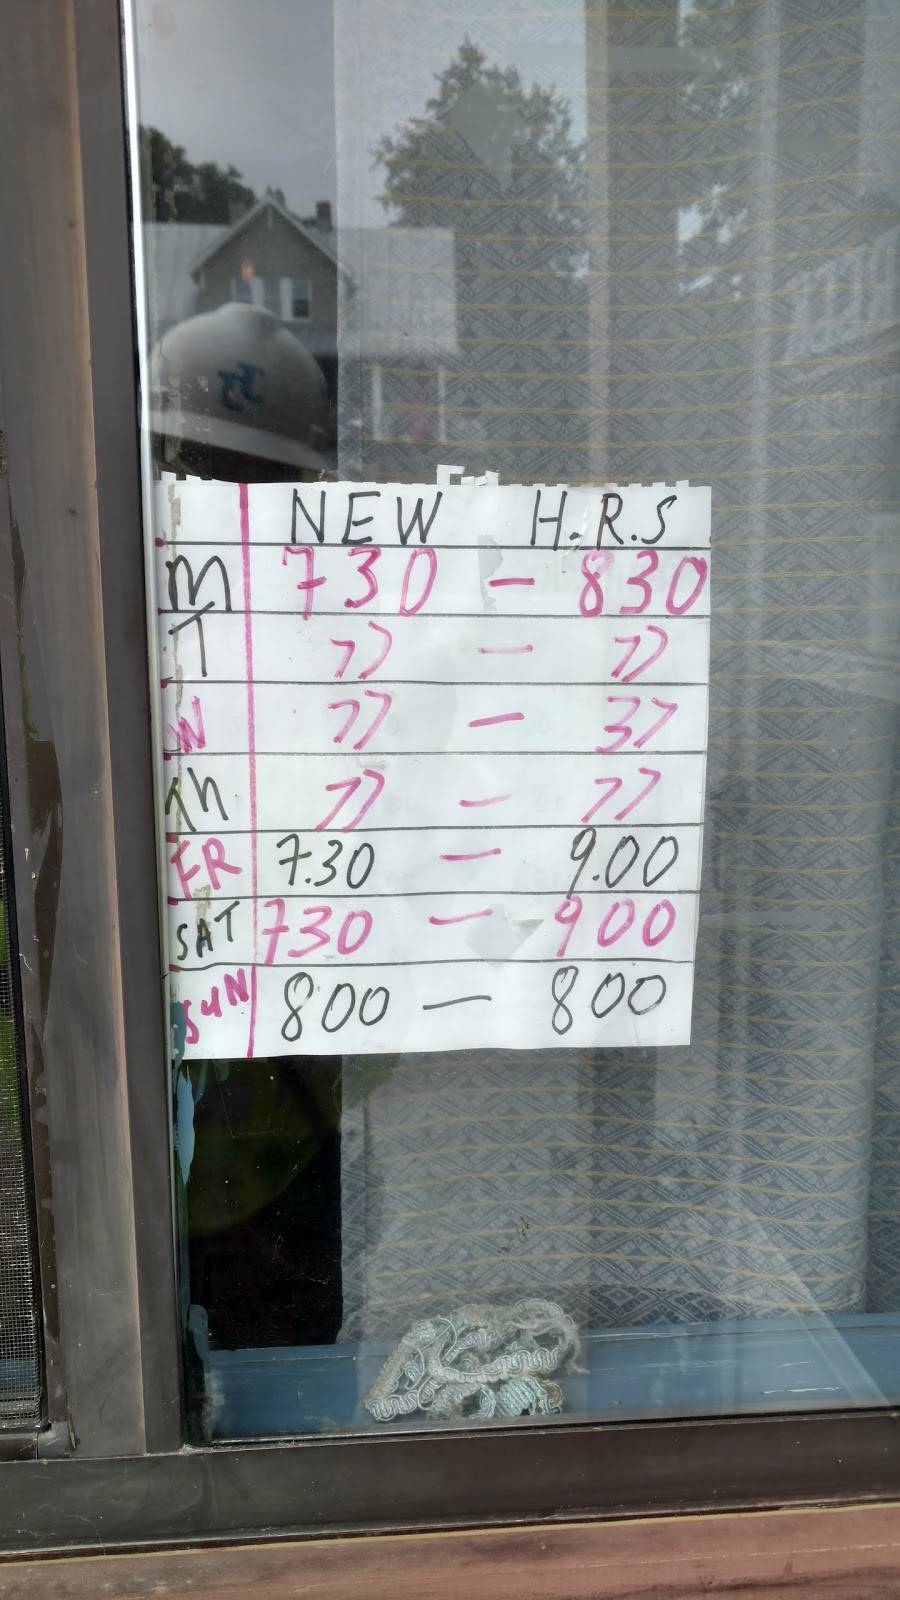 NEW H.R.S
M 730 - 830
T 〃 - 〃
W 〃 - 〃
Th 〃 - 〃
FR 7.30 - 9.00
SAT 730 - 900
SUN 800 - 800